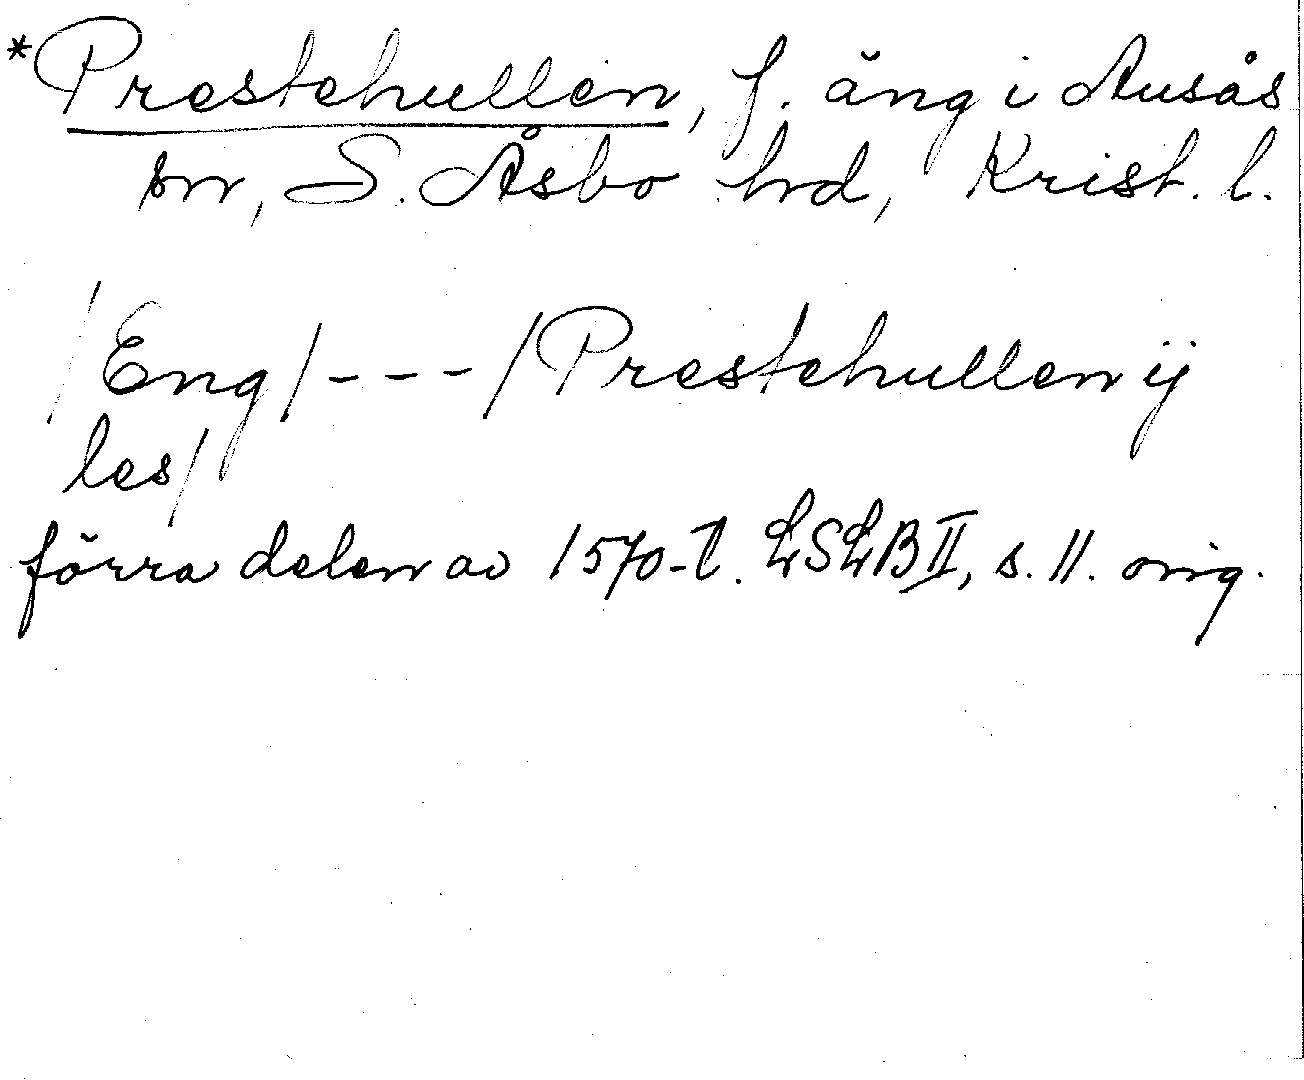 *Prestehullen, f. äng i Ausås
sn, S. Åsbo hd, Krist. l.
/Eng/ - - - /Prestehullen ij
les/
förra delen av 1570-t. LSLB II, s. 11. orig.